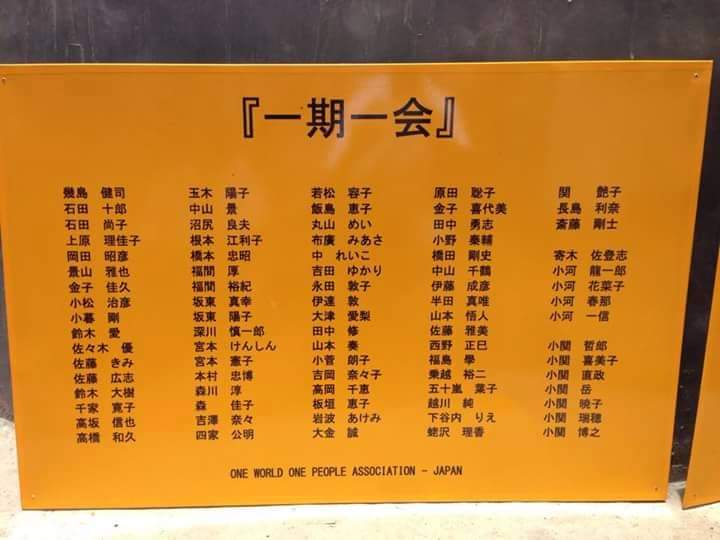 『一期一会』
幾島 健司
石田 十郎
石田 尚子
上原 理佳子
岡田 昭彦
景山 雅也
金子 佳久
小松 治彦
小暮 剛
鈴木 愛
佐々木 優
佐藤 きみ
佐藤 広志
鈴木 大樹
千家 寛子
高坂 信也
高橋 和久
玉木 陽子
中山 景
沼尻 良夫
根本 江利子
橋本 忠昭
福間 厚
福間 裕紀
坂東 真幸
坂東 陽子
深川 慎一郎
宮本 けんしん
宮本 憲子
本村 忠博
森川 淳
森 佳子
吉澤 奈々
四家 公明
若松 容子
飯島 恵子
丸山 めい
布廣 みあさ
中 れいこ
吉田 ゆかり
永田 敦子
伊達 敦
大津 愛梨
田中 修
山本 奏
小菅 朗子
吉岡 奈々子
高岡 千恵
板垣 恵子
岩波 あけみ
大金 誠
原田 聡子
金子 喜代美
田中 勇志
小野 秦輔
橋田 剛史
中山 千鶴
伊藤 成彦
半田 真唯
山本 悟人
佐藤 雅美
西野 正巳
福島 學
乗越 裕二
五十嵐 葉子
越川 純
下谷内 りえ
蛯沢 理香
関 艶子
長島 利奈
斎藤 剛士
寄木 佐登志
小河 龍一郎
小河 花菜子
小河 春那
小河 一信
小関 哲郎
小関 喜美子
小関 直政
小関 岳
小関 暁子
小関 瑞穂
小関 博之
ONE WORLD ONE PEOPLE ASSOCIATION - JAPAN